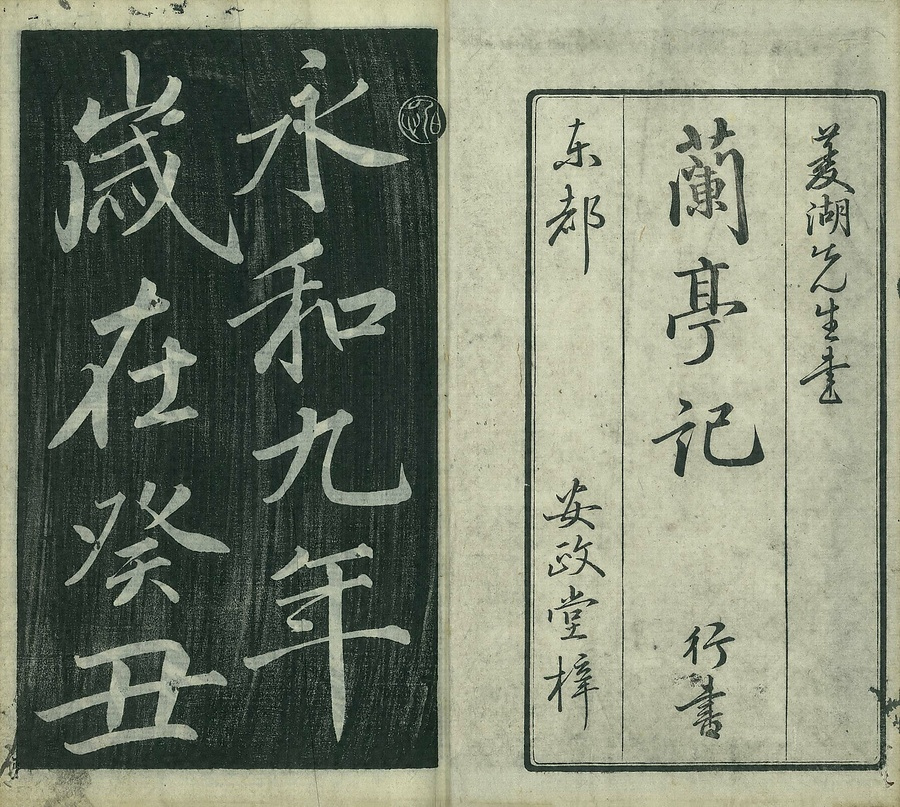 菱湖先生書
蘭亭記 行書
東都 安政堂梓
永和九年
歳在癸丑